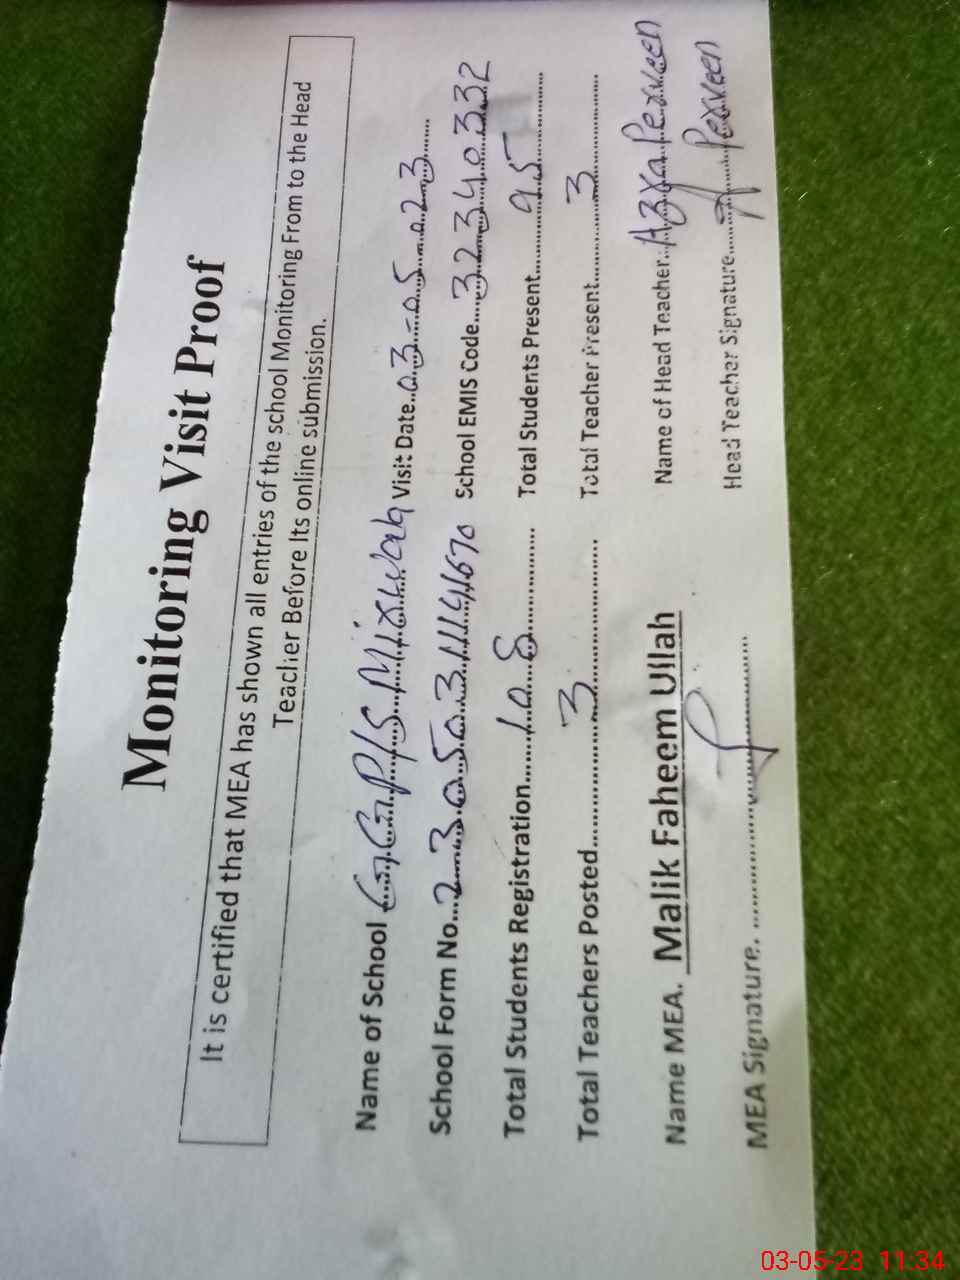 Monitoring Visit Proof
It is certified that MEA has shown all entries of the school Monitoring From to the Head
Teacher Before Its online submission.
Name of School GGP/S Mirwah Visit Date 03-05-023
School Form No. 23050311141670 School EMIS Code 32340332
Total Students Registration 108 Total Students Present 95
Total Teachers Posted 3 Total Teacher Present 3
Name MEA. Malik Faheem Ullah Name of Head Teacher Azra Perveen
MEA Signature. Head Teacher Signature A Perveen
03-05-23 11:34